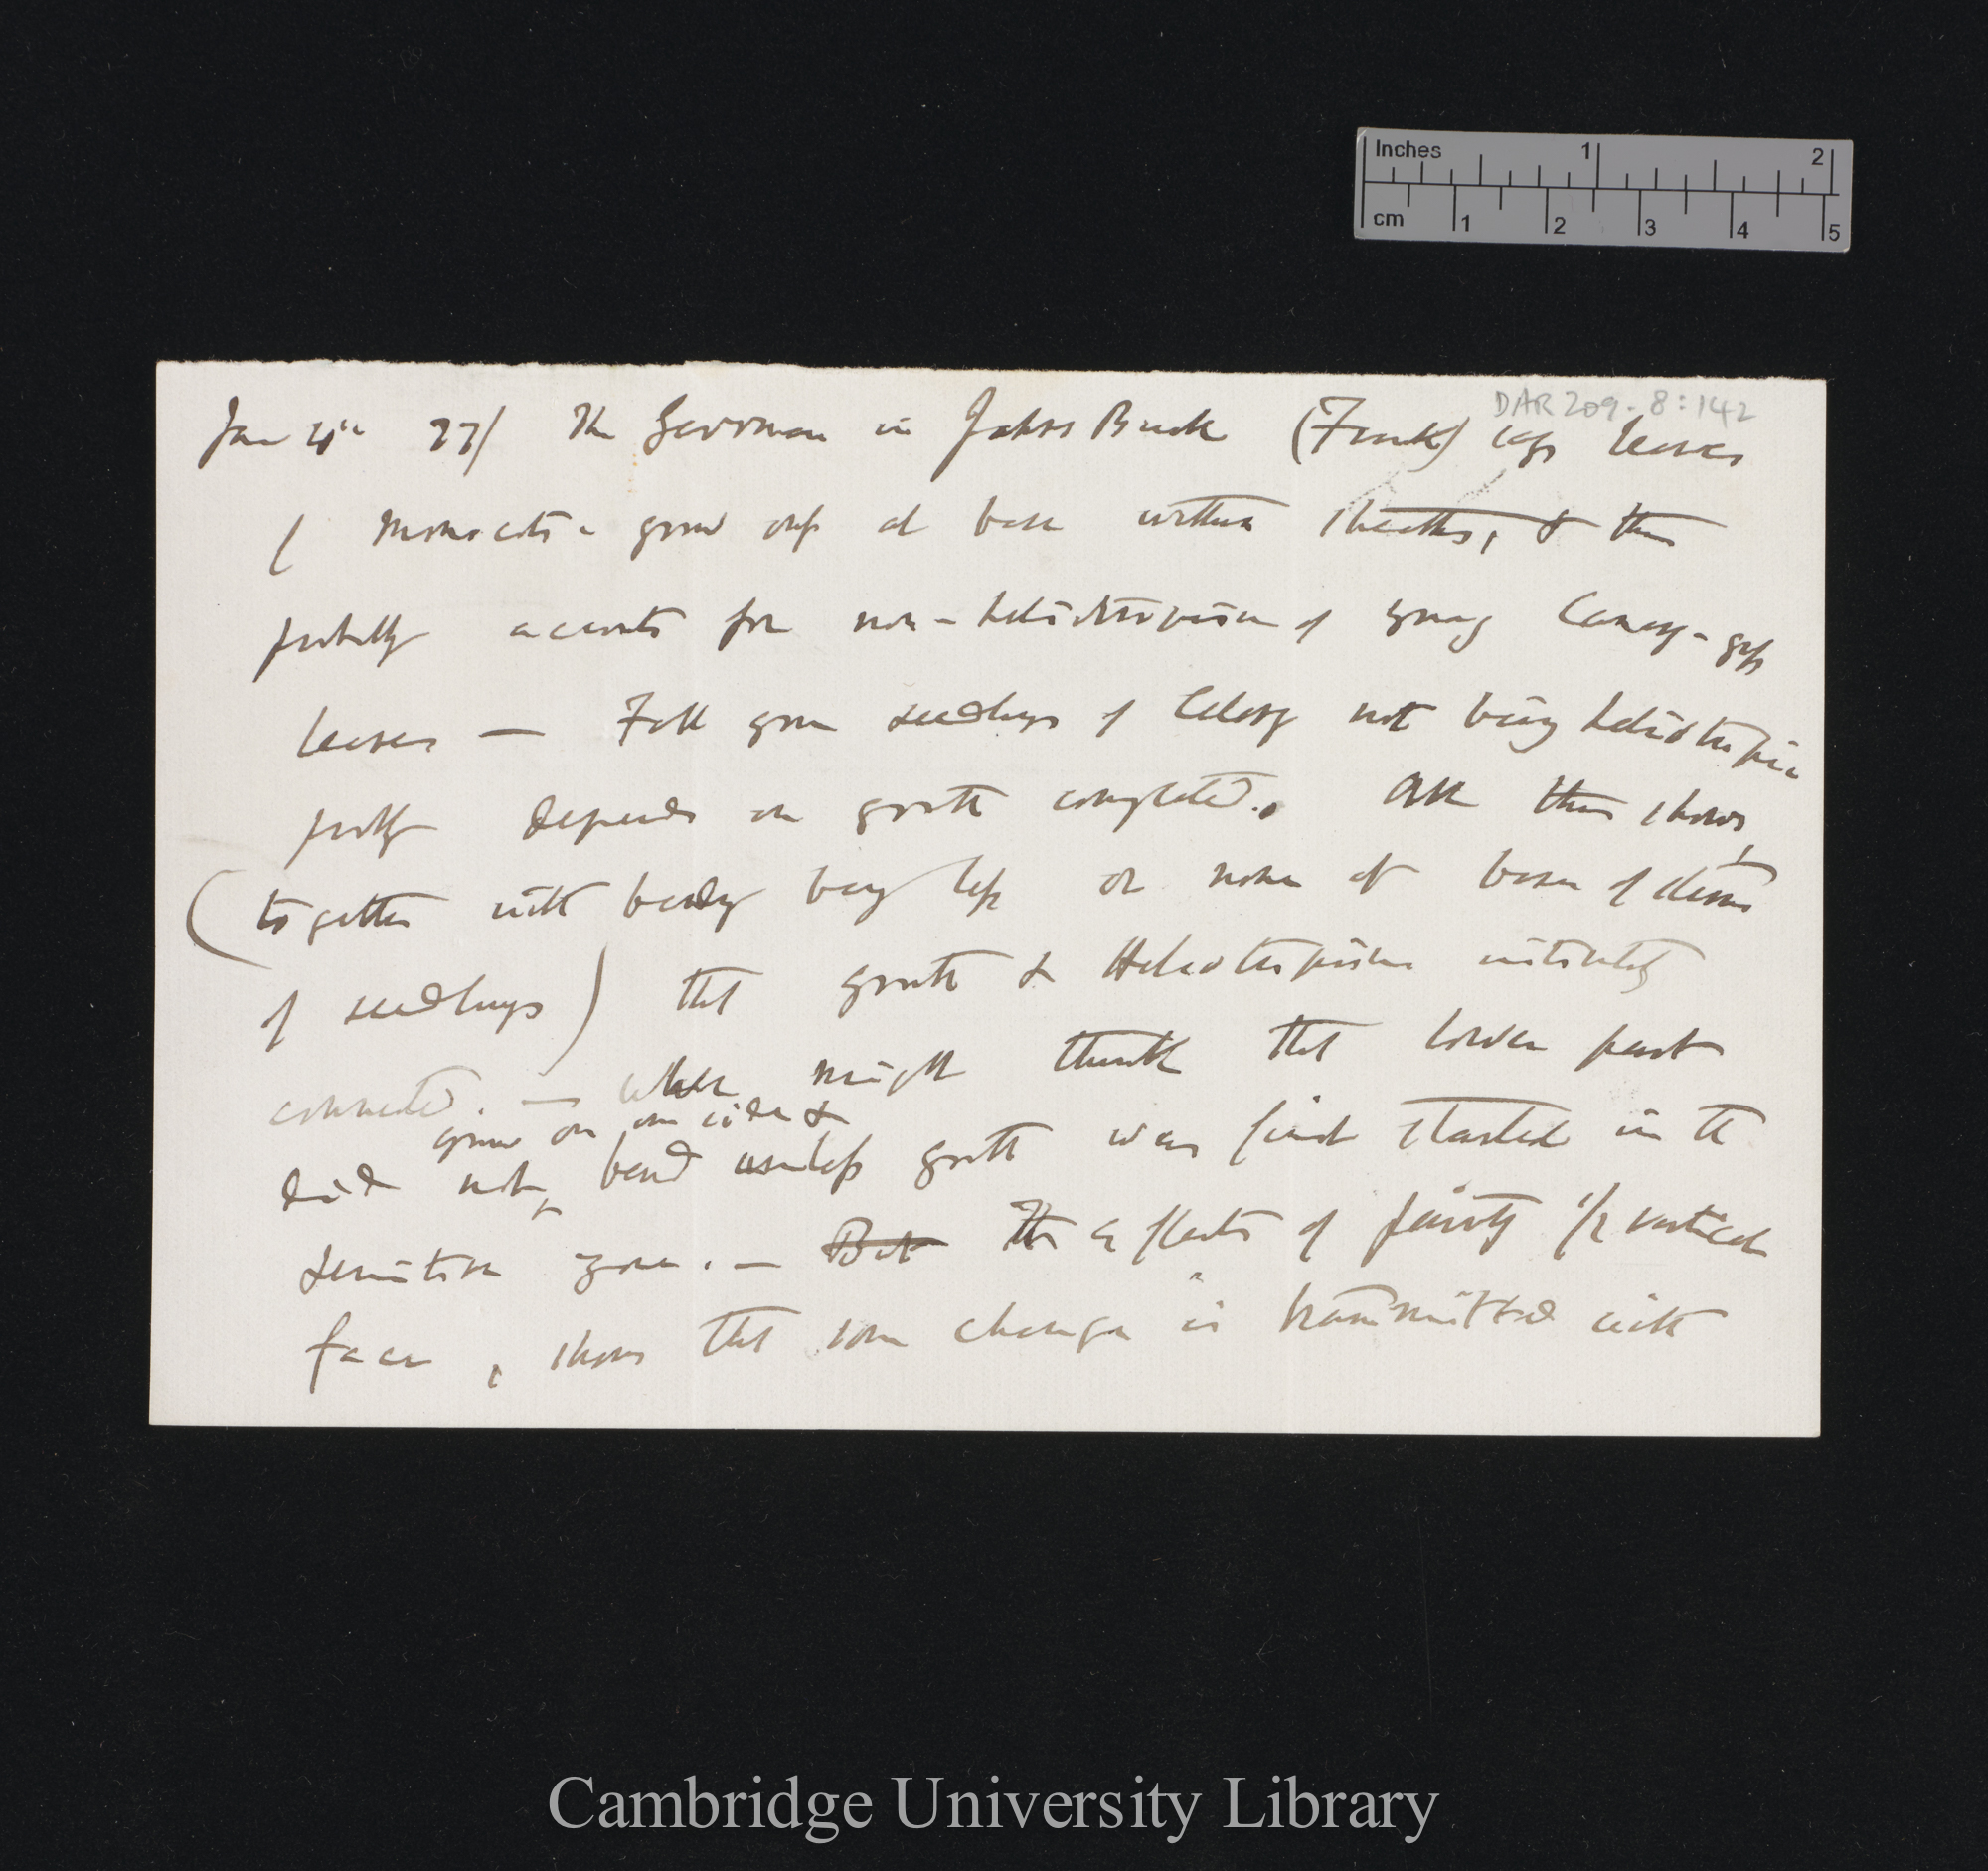 Inches 1 2
cm 1 2 3 4 5
DAR 209.8:142
Jan 4th The German in Jahrs Buch (Frank) says leaves
of Monocots. grow only at base within sheaths, & this
probably accounts for non-heliotropism of young Canary-grass
leaves — Full grown seedlings of Celery not being heliotropic
probably depends on growth completed. All this shows,
(together with bending being less or none at base of stems
of seedlings) that growth & Heliotropism intimately
connected. — might think that lower part
grow on one side &
did not bend unless growth was first started in the
sensitive zone. — But The effects of painting 1/2 vertical
face, shows that some change is transmitted with
Cambridge University Library